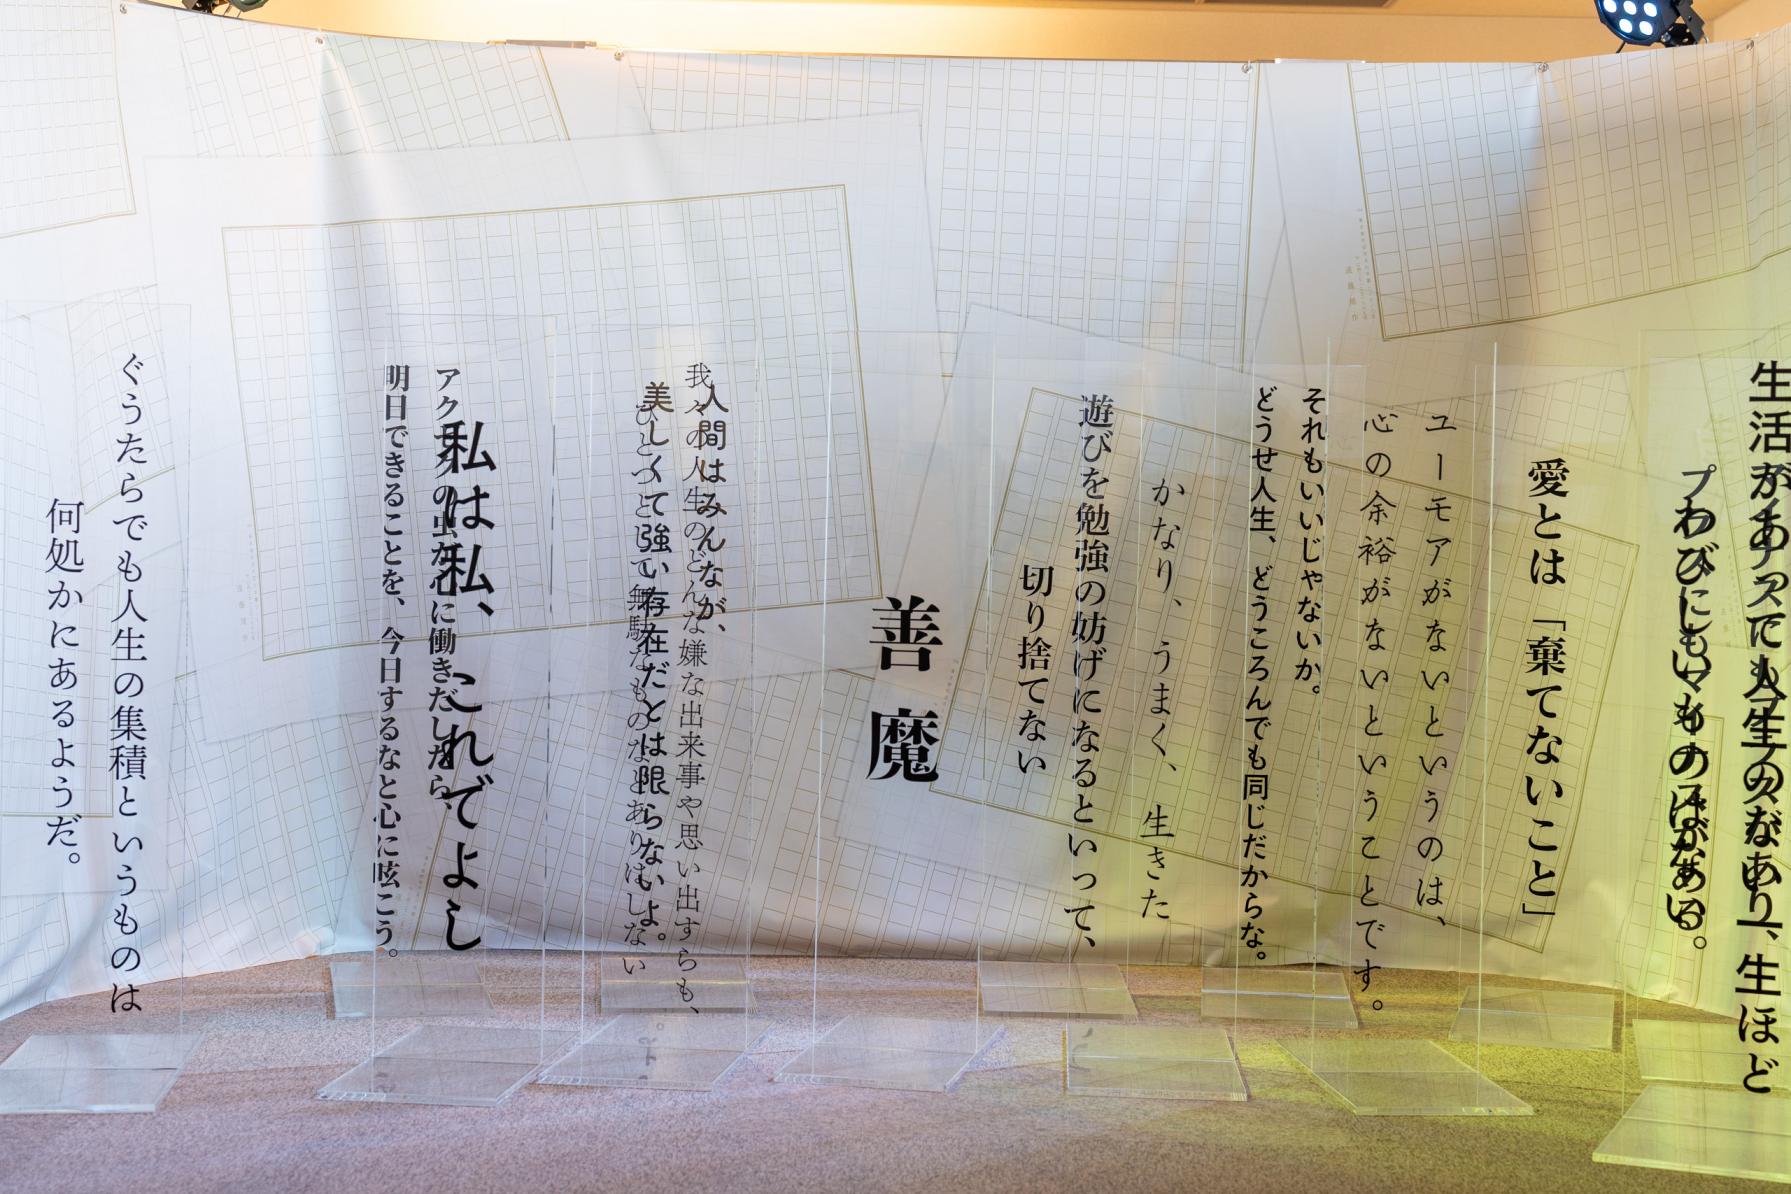 生活があっても人生のない一生ほど
わびしいものはない。
愛とは「棄てないこと」
ユーモアがないというのは、
心の余裕がないということです。
それもいいじゃないか。
どうせ人生、どうころんでも同じだからな。
かなり、うまく、生きた
遊びを勉強の妨げになるといって、
切り捨てない
善魔
人間はみんなが、
美しくて強い存在だとは限らないよ。
我々の人生のどんな嫌な出来事や思い出すらも、
ひとつとして無駄なものなどありはしない。
私は私、これでよし
アクセクの虫が心に働きだしたら、
明日できることを、今日するなと心に呟こう。
ぐうたらでも人生の集積というものは
何処かにあるようだ。